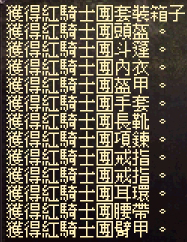 獲得紅騎士團套裝箱子
獲得紅騎士團頭盔。
獲得紅騎士團斗篷。
獲得紅騎士團內衣。
獲得紅騎士團盔甲。
獲得紅騎士團手套。
獲得紅騎士團長靴。
獲得紅騎士團項鍊。
獲得紅騎士團戒指。
獲得紅騎士團戒指。
獲得紅騎士團耳環。
獲得紅騎士團腰帶。
獲得紅騎士團臂甲。